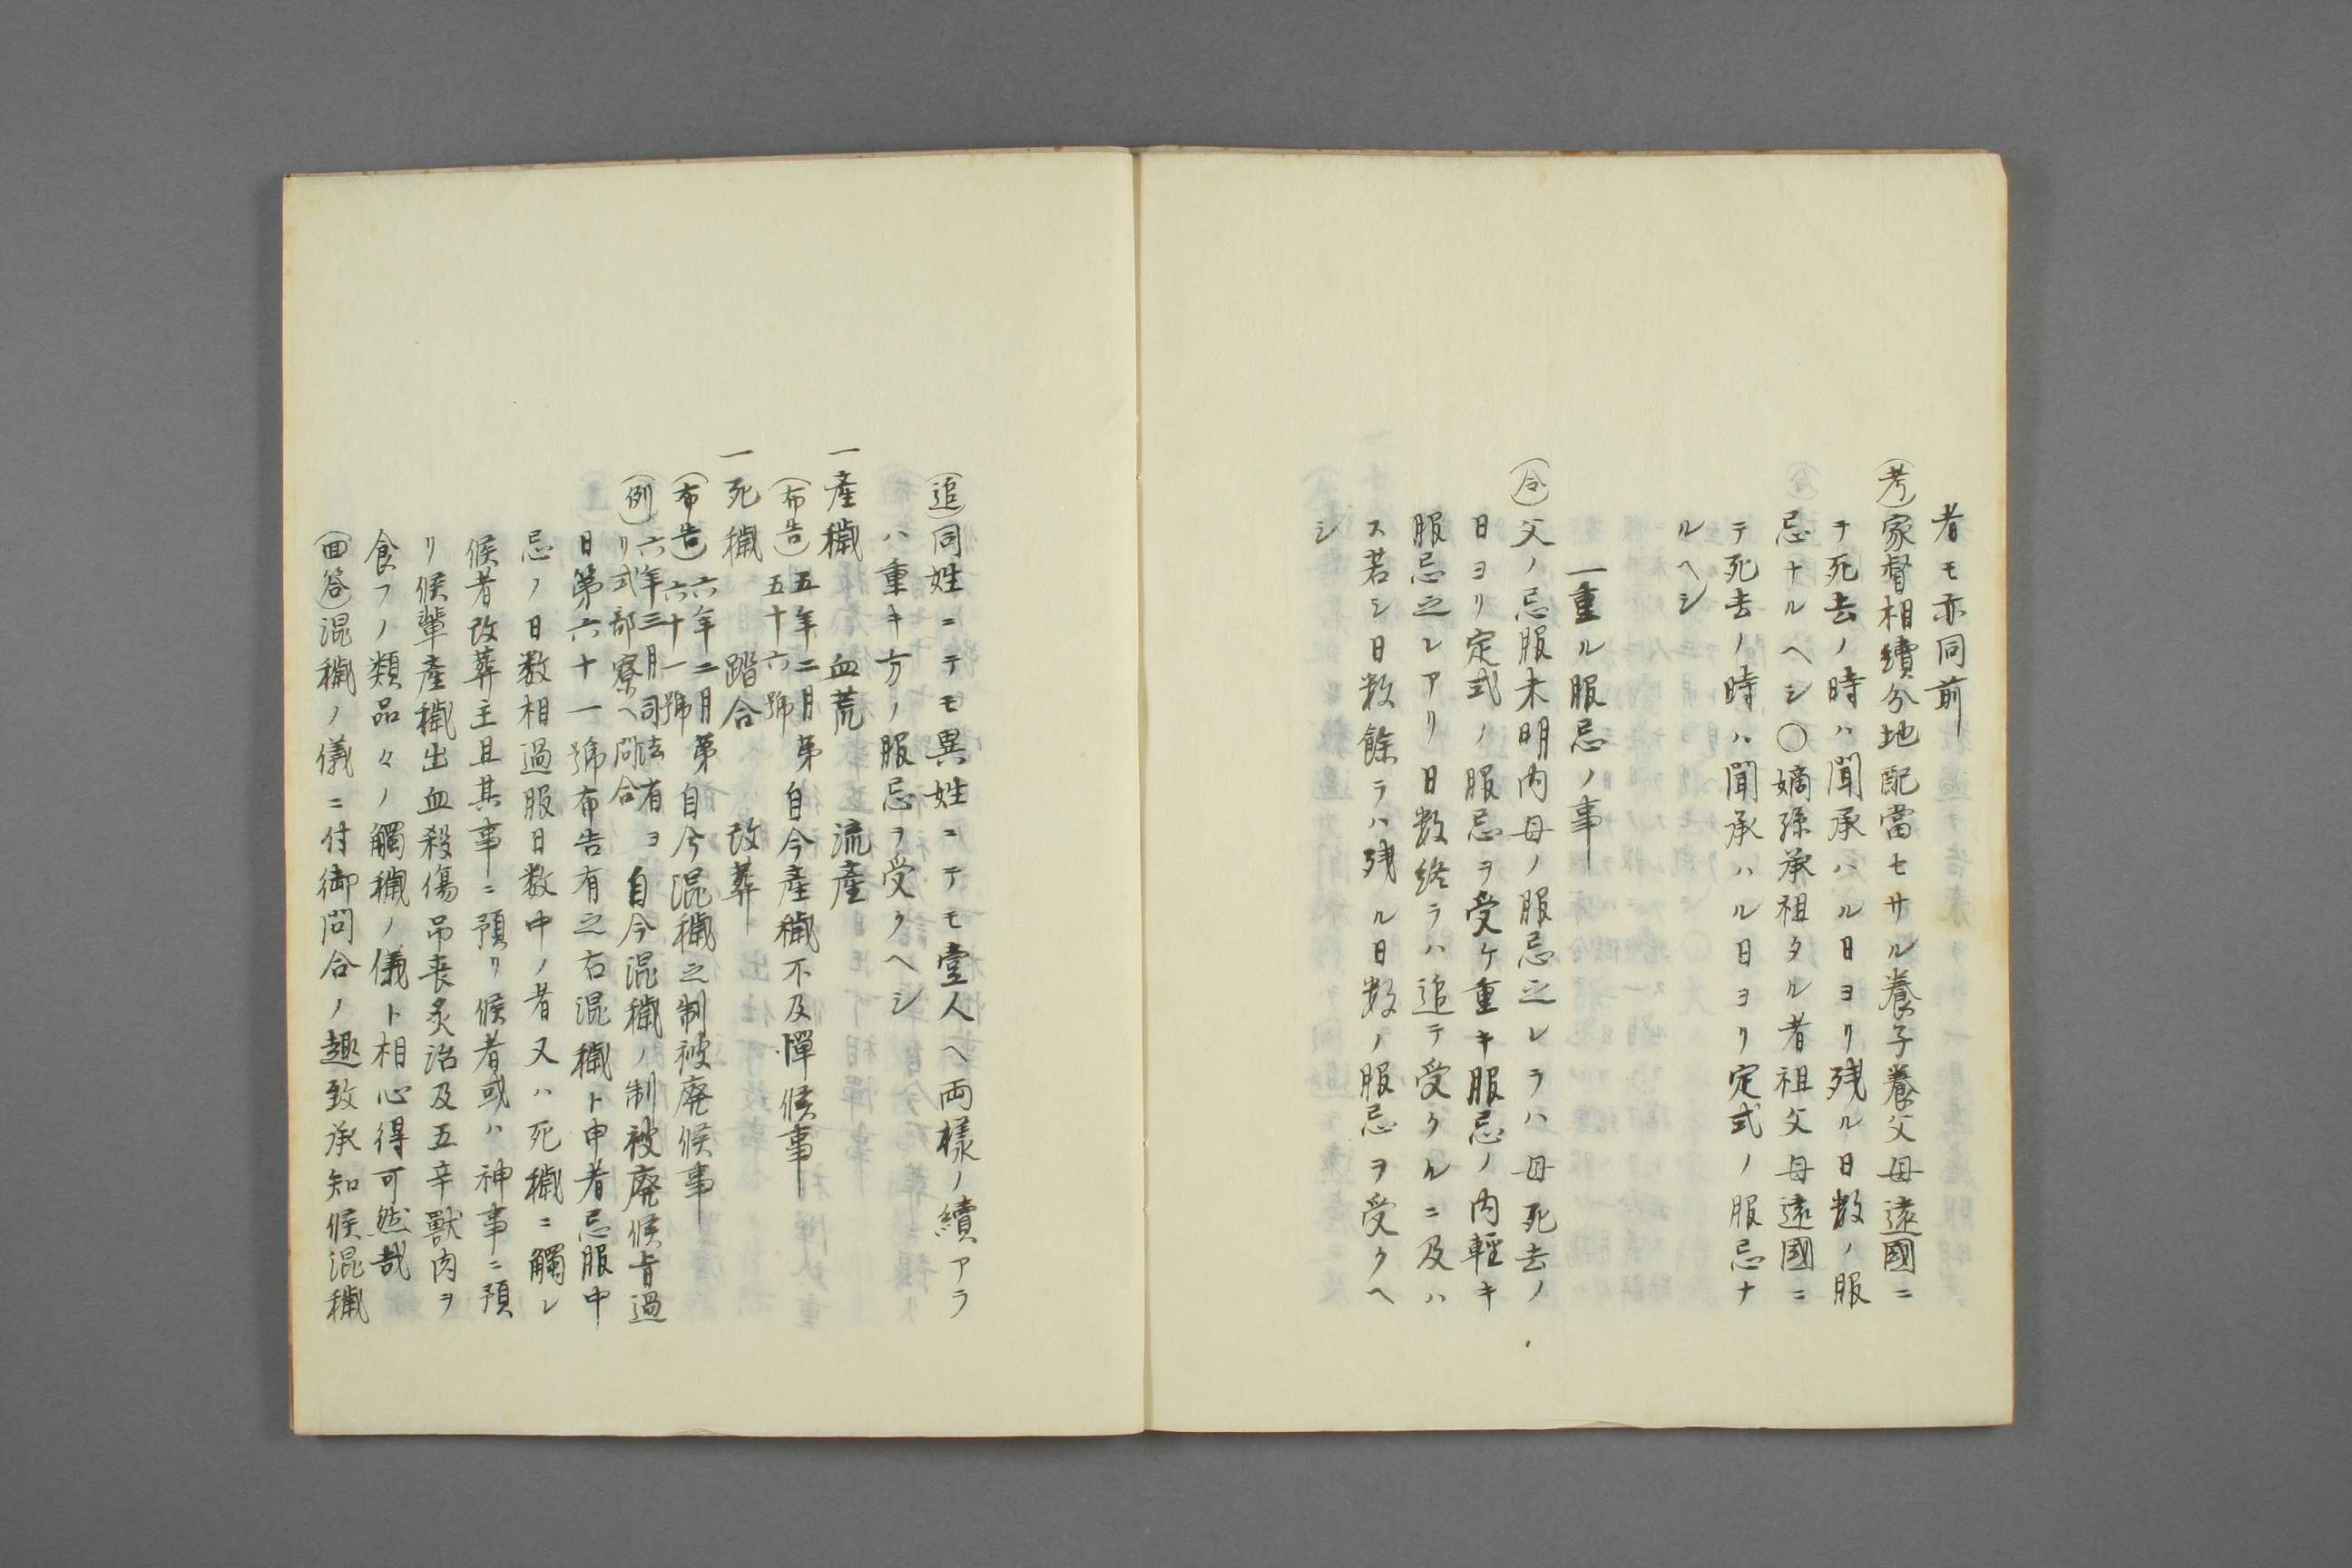 者モ亦同前
(考)家督相續分地配當セサル養子養父母遠國ニ
テ死去ノ時ハ聞承ハル日ヨリ残ル日数ノ服
忌ナルヘシ○嫡孫承祖タル者祖父母遠國ニ
テ死去ノ時ハ聞承ハル日ヨリ定式ノ服忌ナ
ルヘシ
一重ル服忌ノ事
(令)父ノ忌服未明内母ノ服忌之レラハ母死去ノ
日ヨリ定式ノ服忌ヲ受ケ重キ服忌ノ内輕キ
服忌之レアリ日数終ラハ追テ受クルニ及ハ
ス若シ日数餘ラハ残ル日数ノ服忌ヲ受クヘ
シ
(追)同姓ニテモ異姓ニテモ壹人ヘ両樣ノ續アラ
ハ重キ方ノ服忌ヲ受クヘシ
一産穢 血荒 流産
(布告)五年二月第五十六號 自今産穢不及憚候事
一死穢 踏合 改葬
(布告)六年二月第六十一號 自今混穢之制被廃候事
(例)六年三月司法省ヨリ式部寮ヘ問合 自今混穢ノ制被廃候旨過
日第六十一號布告有之右混穢ト申者忌服中
忌ノ日数相過服日数中ノ者又ハ死穢ニ觸レ
候者改葬主且其事ニ預リ候者或ハ神事ニ預
リ候輩産穢出血殺傷吊丧炙治及五辛獸肉ヲ
食フノ類品々ノ觸穢ノ儀ト相心得可然哉
(回答)混穢ノ儀ニ付御問合ノ趣致承知候混穢